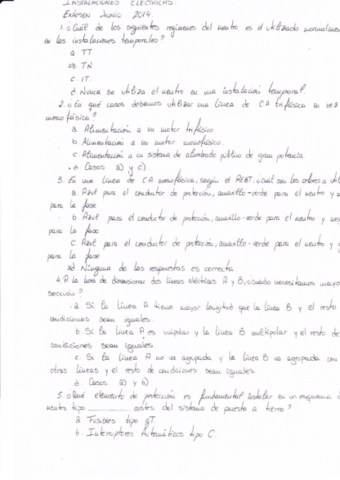 INSTALACIONES ELÉCTRICAS.
EXÁMEN JUNIO 2014.
1. ¿Cuál de los siguientes regímenes del neutro es el utilizado normalmen
en las instalaciones temporales?
a. TT.
b. TN
c. IT.
d. Nunca se utiliza el neutro en una instalación temporal.
2. ¿En qué casos debemos utilizar una línea de CA trifásica en vez
monofásica?
a. Alimentación a un motor trifásico
b. Alimentación a un motor monofásico.
c. Alimentación a un sistema de alumbrado público de gran potencia.
d. Casos a) y c).
3. En una línea de CA monofásica, según el REBT, cuál son los colores a uti
a. Azul para el conductor de protección, amarillo-verde para el neutro y
para la fase
b. Azul para el conductor de protección, amarillo-verde para el neutro y neg
para la fase
c. Azul para el conductor de protección, amarillo-verde para el neutro y g
para la fase
d. Ninguna de las respuestas es correcta.
4. A la hora de dimensionar dos líneas eléctricas A y B, cuando necesitamos mayo
sección?
a. Si la línea A tiene mayor longitud que la línea B y el resto
condiciones sean iguales.
b. Si la línea A es unipolar y la línea B multipolar y el resto de
condiciones sean iguales.
c. Si la línea A no va agrupada y la línea B va agrupada con
otras líneas y el resto de condiciones sean iguales.
d. Casos a) y b)
5. ¿Qué elemento de protección es fundamental instalar en un esquema d
neutro tipo ______ antes del sistema de puesta a tierra?
a. Fusibles tipo gT.
b. Interruptores Automáticos tipo C.